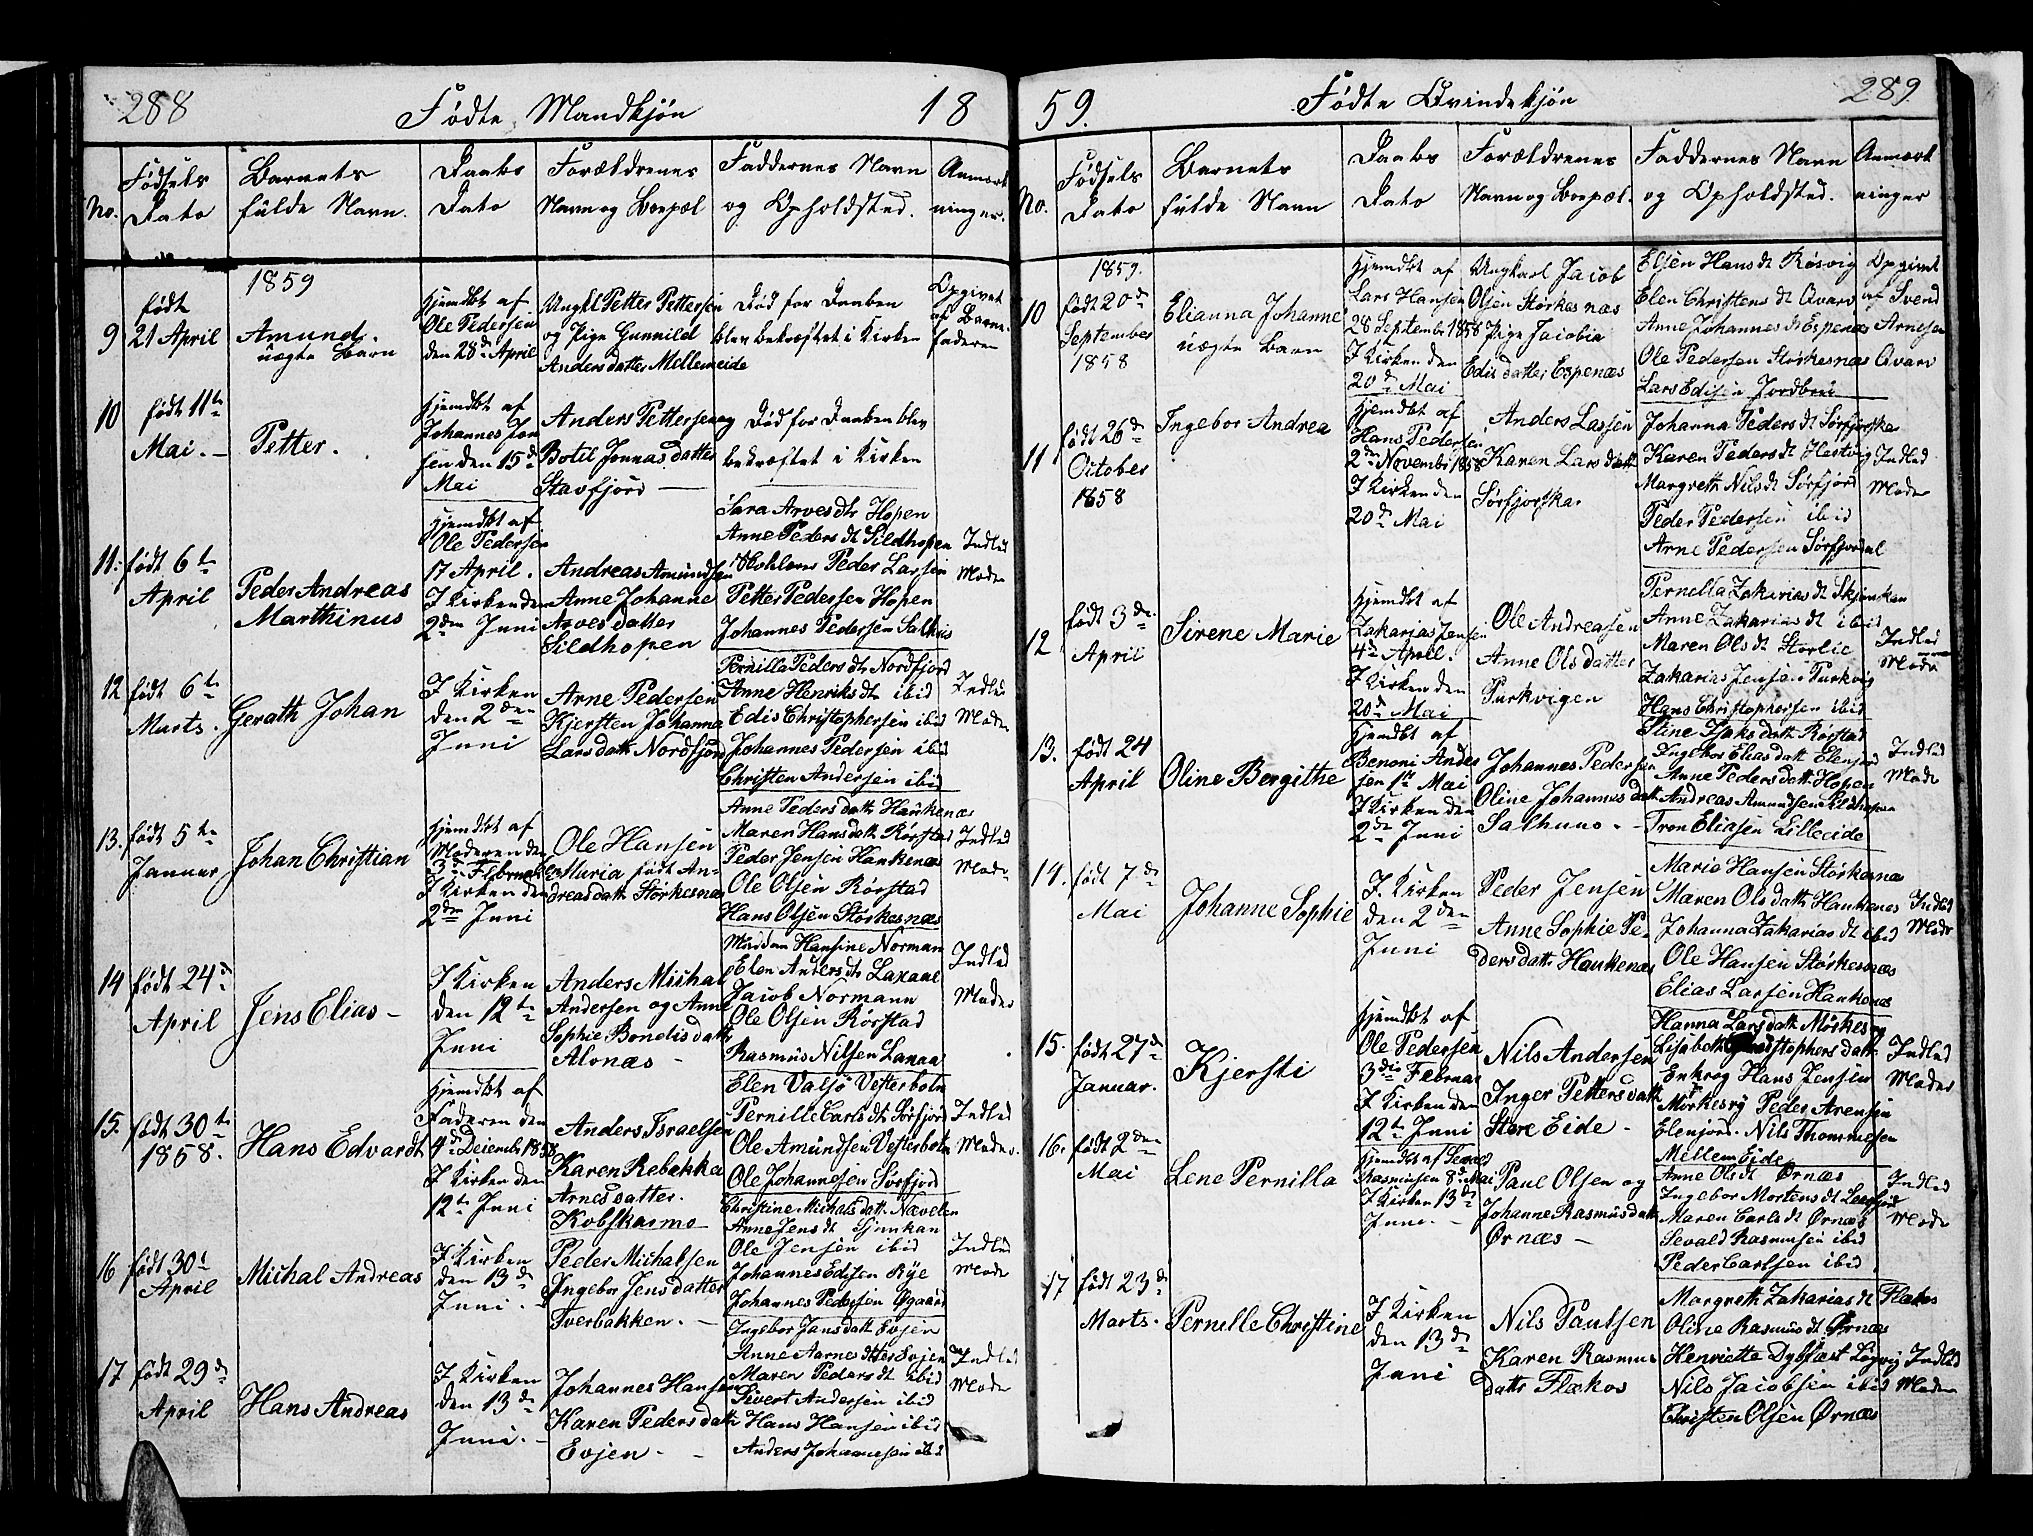 288
Fødte Mandkjøn
18
No.
Fødsels
Dato
Barnets
fulde Navn.
Daabs
Dato
Forældrenes
Navn og Bopæl
Faddernes Navn
og Opholdsted.
Anmærk
ninger.
1859
9
født
21 April
Amund.
uægte Barn
Hjemdbt af
Ole Pedersen
den 28de April
Ungkl Petter Pettersen
og Pige Gunnild
Anders datter Mellemeide
Død før Daaben
blev bekræftet i Kirken
Opgivet
af Barne-
faderen
10
født 11te
Mai. -
Petter.
Hjemdbt af
Johannes Jon
sen den 15de
Mai
Anders Pettersen og
Botil Jonnas datter
Stavfjord
Død for Daaben blev
bekræftet i Kirken
11.
født 6te
April
Peder Andreas
Marthinus
Hjemdbt af
Ole Pedersen
17 April.
I Kirken den
2den Juni
Andreas Amundsen
Anne Johanne
Arves datter
Sildhopen
Sara Arvesdtr Hopen
Anne Peders dt Sildhopen
Peder Larsen
Petter Pedersen Hopen
Johannes Pedersen
Indled
Moder
12
født 6te
Marts.
Gerath Johan
I Kirken
den 2den
Juni
Arne Pedersen
Kjersten Johanna
Lars datt Nordfjord
Pernilla Peders dtr Nordfjord
Anne Henriks dtr ibid
Edis Christophersen ibid
Johannes Pedersen ibid
Christen Andersen ibid
Indled
Moder
13.
født 5te
Januar
Johan Christian
Hjemdbt af
Moderen den
3de Februar
I Kirken den
2den Juni
Ole Hansen
Maria født An-
dreas datt Størkesnæs
Anne Peders datt Haukenæs
Maren Hans datt Rørstad
Peder Jensen Haukenæs
Ole Olsen Rørstad
Hans Olsen Størkesnæs
Indled
Moder
14
født 24de
April
Jens Elias -
I Kirken
den 12te
Juni
Anders Michal
Andersen og Anne
Sophie Bendis datt
Alonæs -
Madam Hansine Norman
Elen Anders dtr Laxaae
Jacob Normann
Ole Olsen Rørstad
Rasmus Nilsen Laxaa
Indled
Moder
15.
født 30te
1858.
Hans Edvardt
Hjemdbt af
Faderen den
4de Decembr 1858
I Kirken den
12te Juni
Anders Israelsen
Karen Rebekka
Arnes datter.
Kobskarmo
Elen Valsø Vesterbotn
Pernille Carls dt Sørfjord
Ole Amundsen Vesterbotn
Ole Johannesen Sørfjord
Indled
Moder.
16
født 30te
April
Michal Andreas
I Kirken
den 13de
Juni. -
Peder Michalsen
Ingebor Jens datter
Tverbakken. -
Christine Michals datt Nævelen
Anne Jens dt Simkan
Ole Jensen ibid
Johannes Edisen Rye
Johannes Pedersen Øgaard
Indled
Moder
17
født 29de
April
Hans Andreas
I Kirken
den 13de
Juni. -
Johannes Hansen
Karen Peders datt
Evjen -
Ingebor Jans datt Evjen
Anne Aarnes dtter Evjen
Maren Peders dt ibid
Sivert Andersen ibid
Hans Hansen ibid
Anders Johannesen ibid
Indled
Moder
59.
Fødte Qvindekjøn
289.
No.
Fødsels
Dato
Barnets
fulde Navn
Daabs
Dato
Forældrenes
Navn og Bopæl.
Faddernes Navn
og Opholdsted.
Anmærk
ninger
1859.
10
født 20de
September
1858
Elianna Johanne
uægte Barn
Hjemdbt af
Lars Hansen
28 Septembr 1858
I Kirken den
20de Mai
Ungkarl Jacob
Olsen Størkesnæs
Pige Jacobia
Edis datter Espenæs
Elsen Hans dt Røsvig
Elen Christens dt Qvarv
Anne Johannes dt Espenæs
Ole Pedersen Størkesnæs
Lars Edisen Jordbru
Opgivet
af Svend
Arnesen
Qvarv
11
født 26de
October
1858
Ingebor Andrea
Hjemdbt af
Hans Pedersen
2den Novembr 1858
I Kirken den
20de Mai
Anders Larsen
Karen Lars datt
Sørfjorska.
Johanna Peders dt Sørfjorska
Karen Peders dt Hestvig
Margreth Nils dt Sørfjord
Peder Pedersen ibid
Arne Pedersen Sørfjordal
Indled
Moder
12
født 3de
April
Sirene Marie
Hjemdbt af
Zakarias Jensen
4de April.
I Kirken den
20de Mai
Ole Andreasen
Anne Ols datter
Purkvigen
Pernella Zakarias dt
Anne Zakarias dt ibid
Maren Ols dt Storlie
Zakarias Jensen Purkvig
Hans Christophersen ibid
Indled
Moder
13.
født 24
April
Oline Bergithe
Hjemdbt af
Benoni Ander
sen 1te Mai
I Kirken den
2den Juni
Johannes Pedersen
Oline Johannes datt
Salhuus. -
Stine Isaks datt Rørstad
Ingebor Elias datt Elenjord
Anne Peders datt Hopen
Andreas Amundsen Sildhopen
Tron Eliasen Lilleeide
Indled
Moder
14.
født 7de
Mai
Johanne Sophie
I Kirken
den 2den
Juni
Peder Jensen
Anne Sophie Pe-
ders datt Haukenæs
Marie Hansen Størkesnæ
Maren Ols datt Haukenes
Johanna Zakarias dt ibid
Ole Hansen Størkesnæs
Elias Larsen Haukenæs
Indled
Moder
15.
født 27de
Januar.
Kjersti
Hjemdbt af
Ole Pedersen
3die Februar
I Kirken den
12te Juni
Nils Andersen
Inger Petters datt
Store Eide -
Hanna Lars datt Mørkesry
Lisabeth Christophers datt
Enkrog Hans Jensen
Mørkesry Peder Arensen
Elenjord. Nils Thommesen
Mellem Eide
Indled
Moder
16.
født 2den
Mai
Lene Pernilla
Hjemdbt af Sevald
Rasmusen 8de Mai
I Kirken 13de
Juni. -
Paul Olsen og
Johanne Rasmus datt
Ørnæs -
Anne Ols dt Ørnæs
Ingebor Mortens dt
Maren Carls dt Ørnæs
Sevald Rasmusen ibid
Peder Carlsen ibid
Indled
Moder
17
født 23de
Marts.
Pernille Christine
I Kirken
den 13de
Juni
Nils Paulsen
Karen Rasmus
datt Flækos
Margreth Zakarias dt Flækos
Oline Rasmus dt Ørnæs
Henriette Dybfæst Løgvig
Nils Jacobsen ibid
Christen Olsen Ørnæs
Indled
Moder